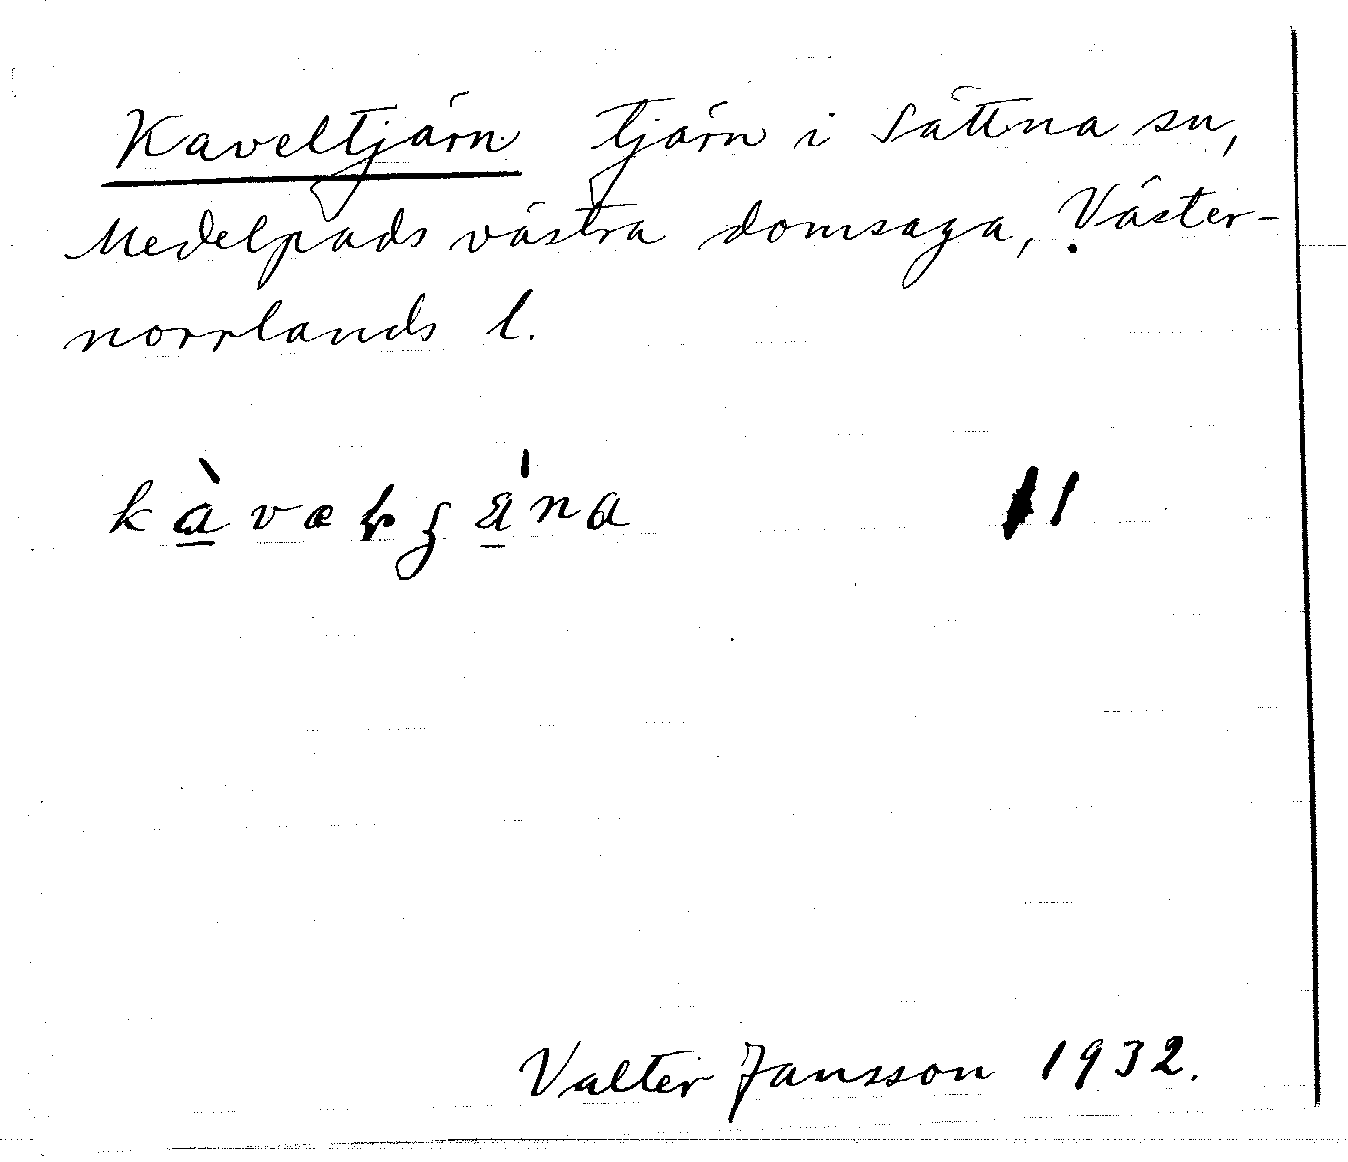 Kaveltjärn tjärn i Sättna sn,
Medelpads västra domsaga, Väster-
norrlands l.
Valter Jansson 1932.